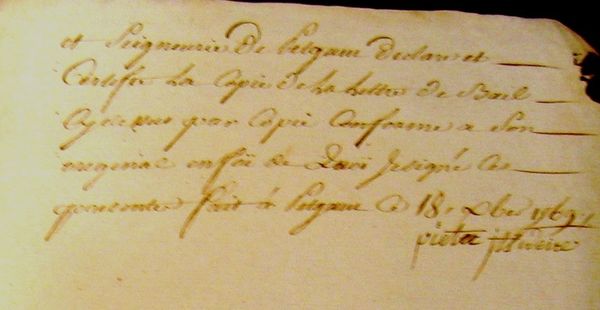 et Seigneurie de Petgam declare et
Certifie La Copie de La Lettre de Bail
Cydessus par Copie Conforme a Son
original en foi de Quoi Jesigné Ces
presentes fait à Petgam Ce 18. Xbre 1769.
pieter